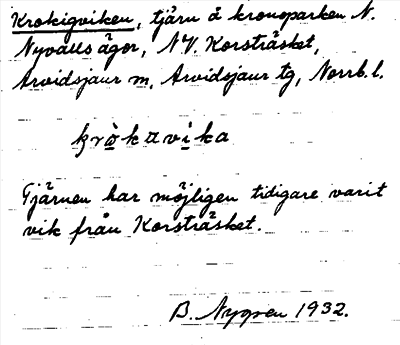 Krokigviken, tjärn å kronoparken N.
Nyvalls ägor, NV. Korsträsket,
Arvidsjaur sn, Arvidsjaur tg, Norrb. l.
krò̱kavi̱ka
Tjärnen har möjligen tidigare varit
vik från Korsträsket.
B. Nygren 1932.